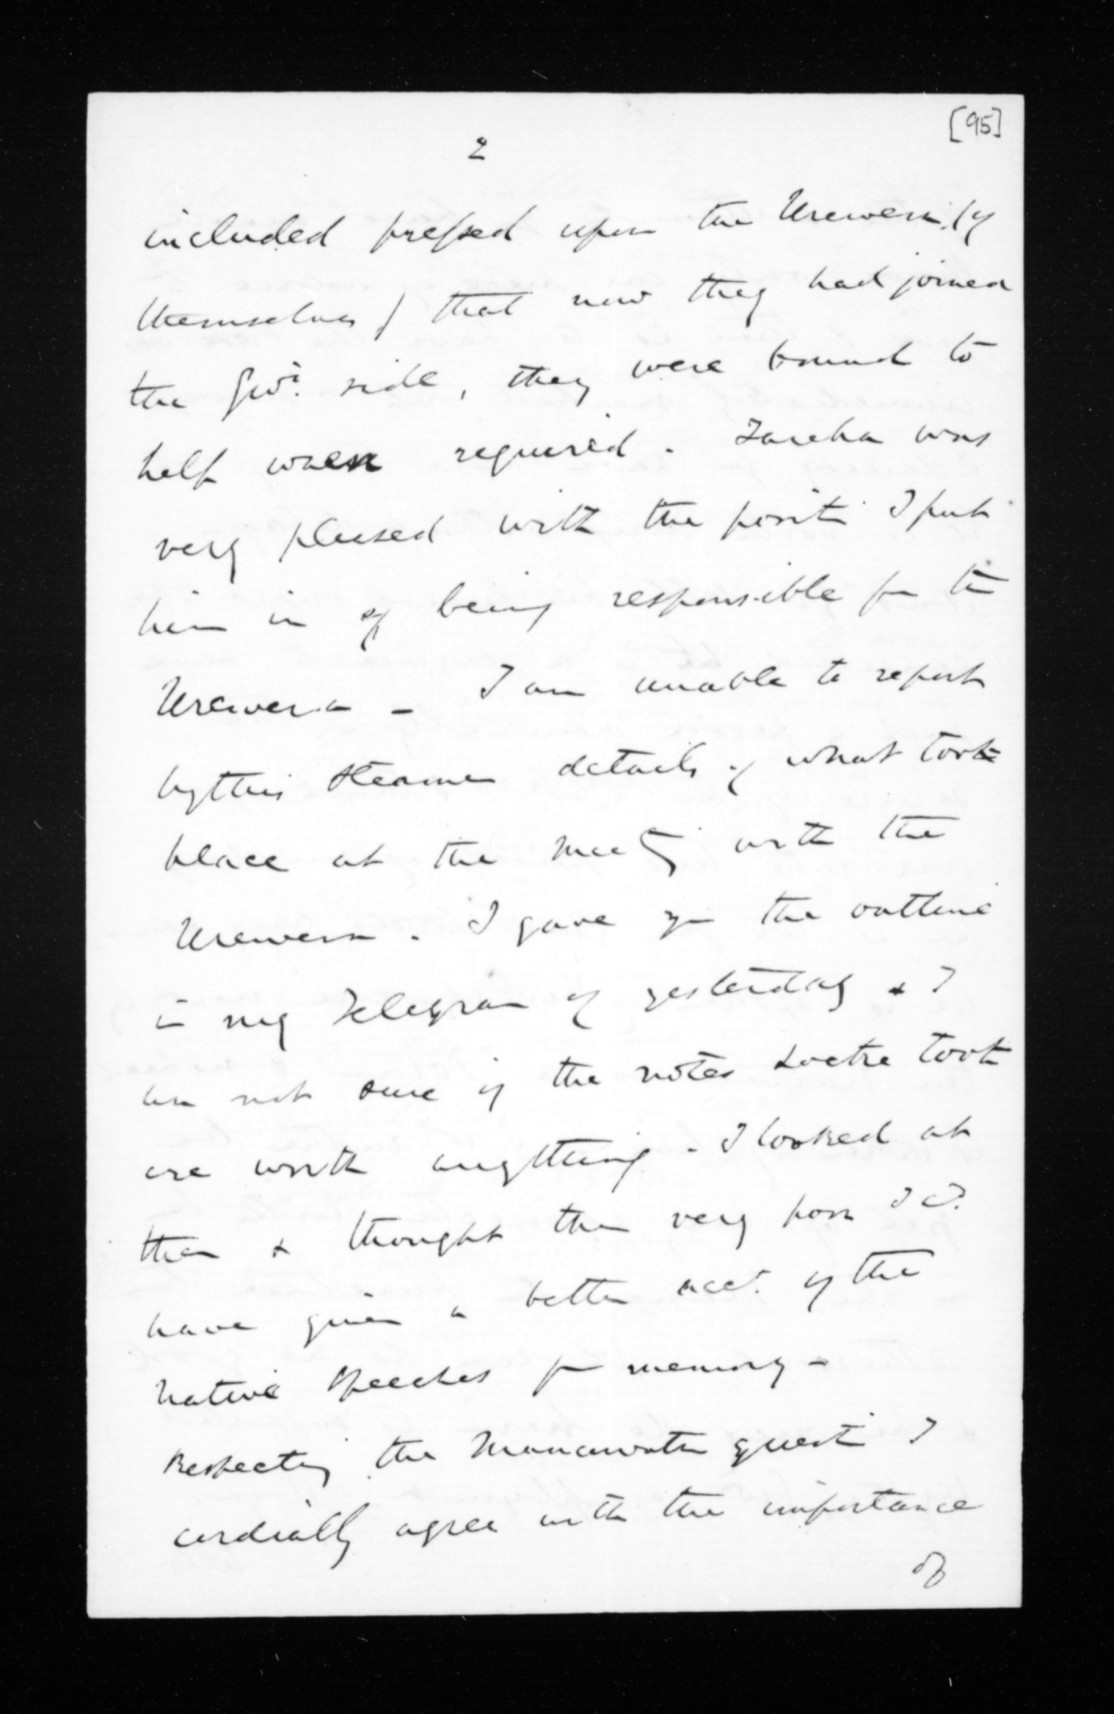 [95]
2
included pressed upon the Urewera (by
themselves) that now they had joined
the Govt. side, they were bound to
help when required. Tareha was
very pleased with the posit. I put
him in of being responsible for the
Urewera - I am unable to report
by this steamer details of what took
place at the meetg with the
Urewera. I gave you the outline
in my Telegram of yesterday & I
am not sure if the notes Locke took
are worth anything. I looked at
them & thought them very poor I cd.
have given a better acct. of the
native speeches from memory -
Respecting the Manawatu quest. I
cordially agree with the importance
of